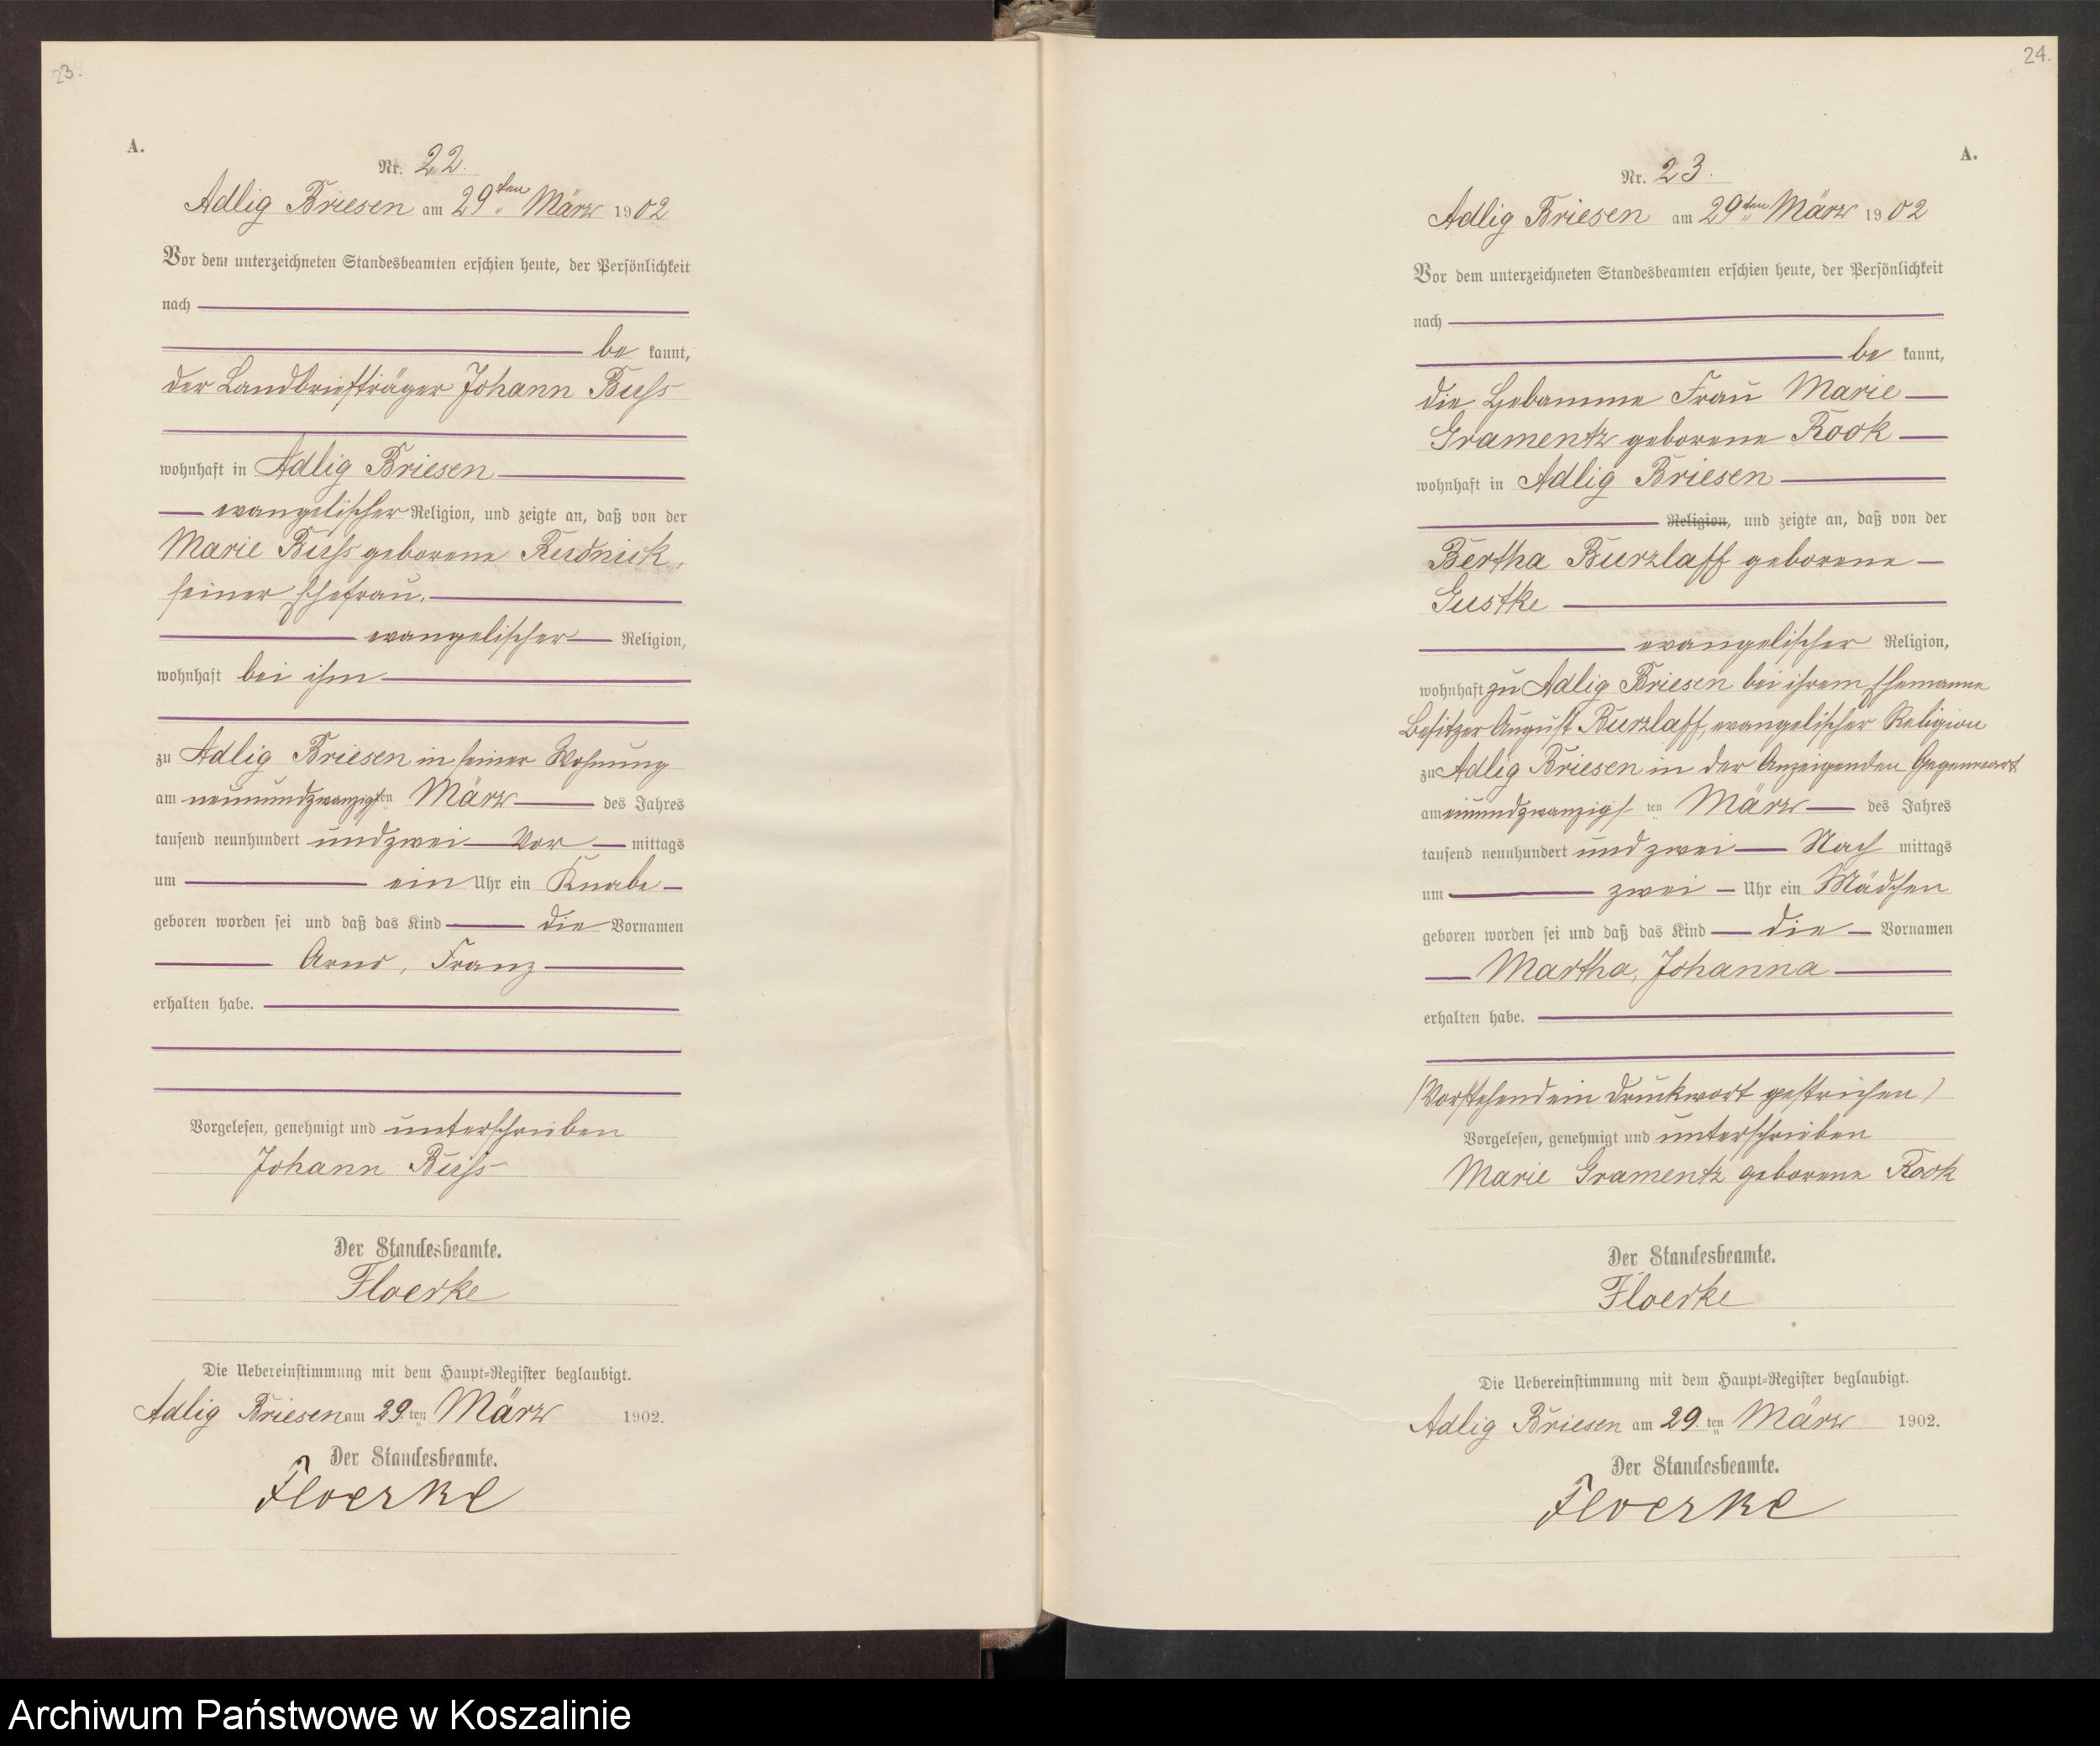 23.
A.
Nr. 22.
Adlig Briesen am 29ten März 1902
Vor dem unterzeichneten Standesbeamten erschien heute, der Persönlichkeit
nach
be kannt,
der Landbriefträger Johann Buss
wohnhaft in Adlig Briesen
evangelischer Religion, und zeigte an, daß von der
Marie Buss geborene Rudnick,
seiner Ehefrau,
evangelischer Religion,
wohnhaft bei ihm
zu Adlig Briesen in seiner Wohnung
am neunundzwanzigsten März des Jahres
tausend neunhundert und zwei Vor mittags
um ein Uhr ein Knabe
geboren worden sei und daß das Kind die Vornamen
Arno, Franz
erhalten habe.
Vorgelesen, genehmigt und unterschrieben
Johann Buss
Der Standesbeamte.
Floerke
Die Uebereinstimmung mit dem Haupt-Register beglaubigt.
Adlig Briesen am 29. ten März 1902.
Der Standesbeamte.
Floerke
24.
A.
Nr. 23.
Adlig Briesen am 29ten März 1902
Vor dem unterzeichneten Standesbeamten erschien heute, der Persönlichkeit
nach
be kannt,
die Hebamme Frau Marie
Gramentz geborene Kook
wohnhaft in Adlig Briesen
Religion, und zeigte an, daß von der
Bertha Burzlaff geborene
Gustke
evangelischer Religion,
wohnhaft zu Adlig Briesen bei ihrem Ehemanne
Besitzer August Burzlaff, evangelischer Religion
zu Adlig Briesen in der Anzeigenden Gegenwart
am einundzwanzigs ten März des Jahres
tausend neunhundert und zwei Nach mittags
um zwei Uhr ein Mädchen
geboren worden sei und daß das Kind die Vornamen
Martha, Johanna
erhalten habe.
(Vorstehend ein Druckwort gestrichen)
Vorgelesen, genehmigt und unterschrieben
Marie Gramentz geborene Kook
Der Standesbeamte.
Floerke
Die Uebereinstimmung mit dem Haupt-Register beglaubigt.
Adlig Briesen am 29. ten März 1902.
Der Standesbeamte.
Floerke
Archiwum Państwowe w Koszalinie